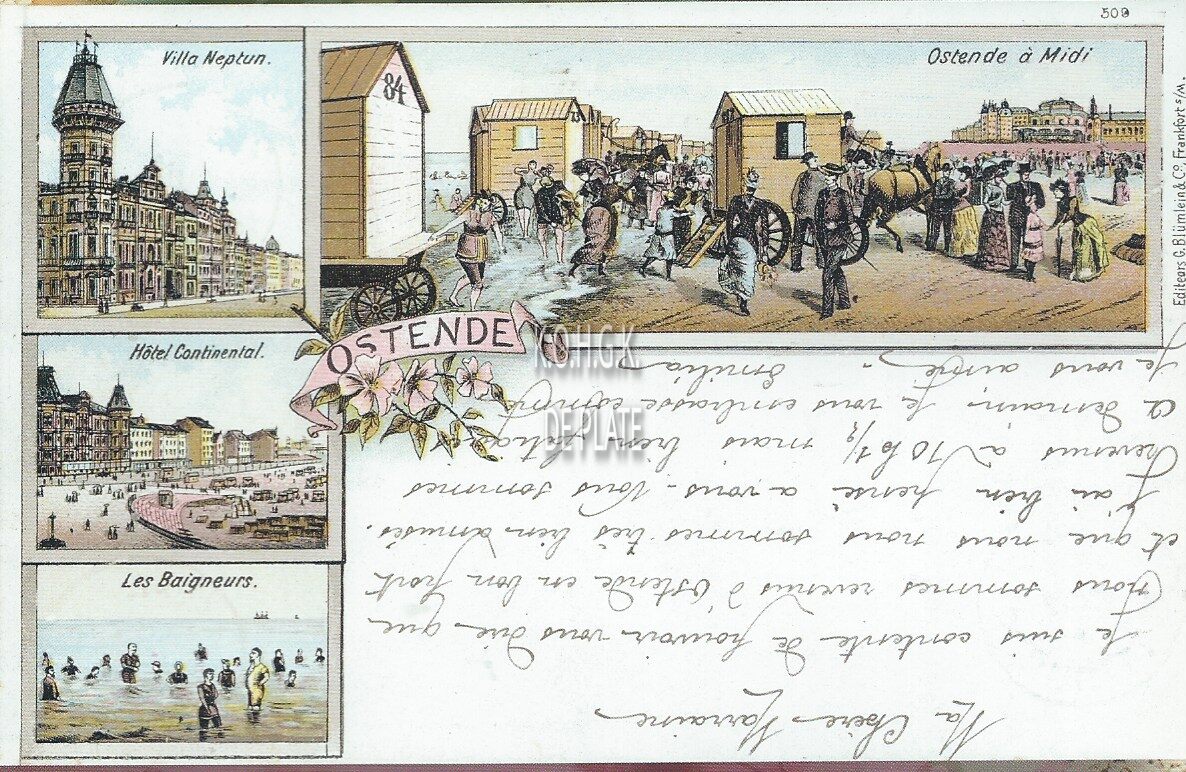 509
Villa Neptun.
Ostende à Midi
84
Editeurs G. Blümlein & Co. Frankfort s/M.
OSTENDE
Hôtel Continental.
Les Baigneurs.
K.O.H.G.K.
DE PLATE
Ma Chère Marraine
Je suis contente de pouvoir vous dire que
nous sommes revenus d'Ostende en bon port
et que nous nous sommes très bien amusés.
J'ai bien pensé a vous. Nous sommes
revenus à 10 h 1/2 mais bien fatigués
a demain. Je vous embrasse comme
je vous aime.
Emilia